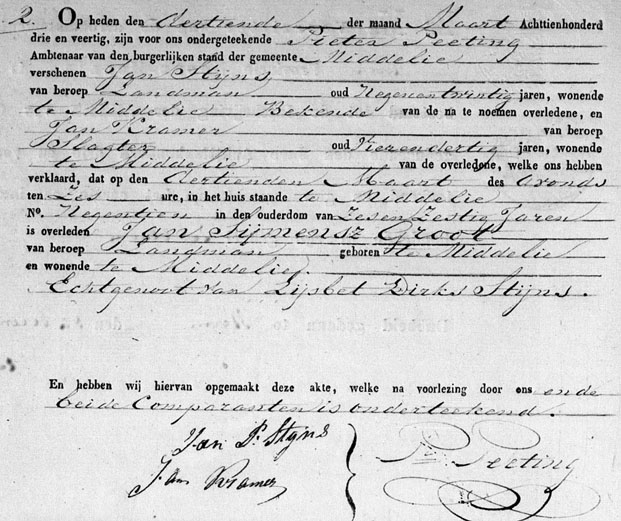 2. Op heden den dertiende der maand Maart Achttienhonderd
drie en veertig, zijn voor ons ondergeteekende Pieter Peeting
Ambtenaar van den burgerlijken stand der gemeente Middelie
verschenen Jan Stijns
van beroep Landman oud Negenentwintig jaren, wonende
te Middelie Bekende van de na te noemen overledene, en
Jan Kramer van beroep
Slagter oud Vierendertig jaren, wonende
te Middelie van de overledone, welke ons hebben
verklaard, dat op den dertienden Maart des avonds
ten Zes ure, in het huis staande te Middelie
No. Negentien in den ouderdom van Zesen Zestig Jaren
is overleden Jan Sijmensz Groot
van beroep Landman geboren te Middelie
en wonende te Middelie
Echtgenoot van Lijsbet Dirks Stijns.
En hebben wij hiervan opgemaakt deze akte, welke na voorlezing door ons en de
beide Comparanten is onderteekend.
Jan P. Stijns
Jan Kramer
Pr. Peeting